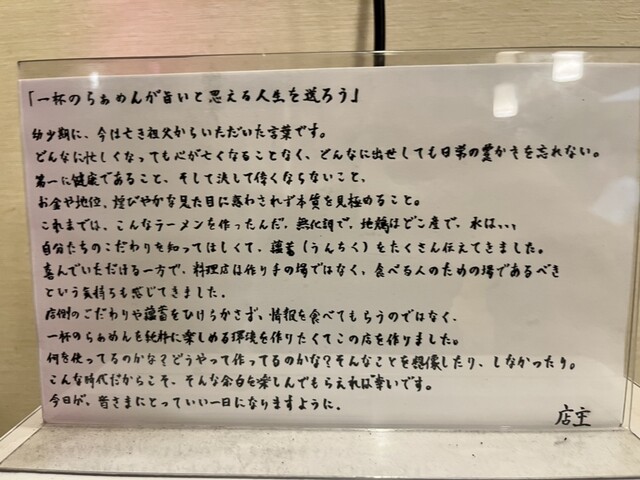 「一杯のらぁめんが旨いと思える人生を送ろう」
幼少期に、今は亡き祖父からいただいた言葉です。
どんなに忙しくなっても心が亡くなることなく、どんなに出世しても日常の豊かさを忘れない。
第一に健康であること、そして決して偉くならないこと、
お金や地位、煌びやかな見た目に惑わされず本質を見極めること。
これまでは、こんなラーメンを作ったんだ、無化調で、地鶏はどこ産で、水は、、、
自分たちのこだわりを知ってほしくて、蘊蓄（うんちく）をたくさん伝えてきました。
喜んでいただける一方で、料理店は作り手の場ではなく、食べる人のための場であるべき
という気持ちも感じてきました。
店側のこだわりや蘊蓄をひけらかさず、情報を食べてもらうのではなく、
一杯のらぁめんを純粋に楽しめる環境を作りたくてこの店を作りました。
何を使ってるのかな？どうやって作ってるのかな？そんなことを想像したり、しなかったり。
こんな時代だからこそ、そんな余白を楽しんでもらえれば幸いです。
今日が、皆さまにとっていい一日になりますように。
店主